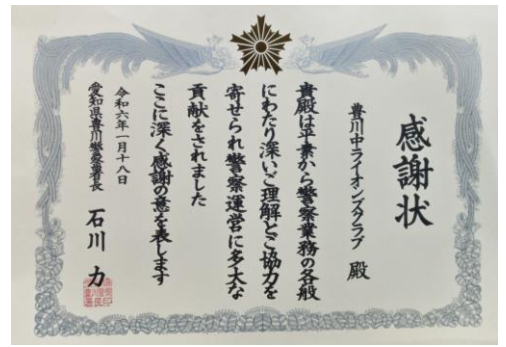 感謝状
豊川中ライオンズクラブ 殿
貴殿は平素から警察業務の各般
にわたり深いご理解とご協力を
寄せられ警察運営に多大な
貢献をされました
ここに深く感謝の意を表します
令和六年一月十八日
愛知県豊川警察署長 石川 力